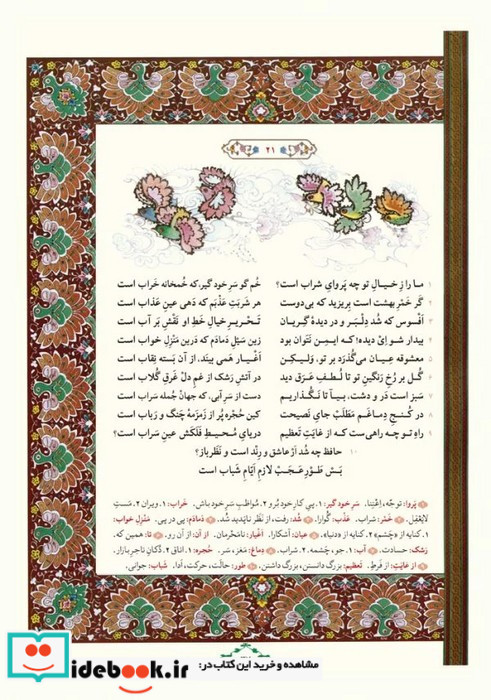 ۲۱
۱ ما را ز خیالِ تو چه پَروایِ شراب است؟ خُم گو سَرِ خود گیر، که خُمخانه خَراب است
۲ گر خَمْرِ بهشت است بریزید که بی‌دوست هر شربتِ عَذْبَم که دَهی عینِ عَذاب است
۳ افسوس که شُد دِلْبَر و در دیدهٔ گریان تَحْریرِ خیالِ خَطِ او نَقْشِ بَر آب است
۴ بیدار شو اِیْ دیده! که ایمن نَتَوان بود زین سَیْلِ دَمادَم که دَرین مَنْزِلِ خواب است
۵ معشوقه عِیان می‌گُذَرَد بر تو، وَلیکِن اَغْیار هَمی بینَد، از آن بَسته نِقاب است
۶ گُل بر رُخِ رَنگینِ تو تا لُطفِ عَرَق دید در آتَشِ رَشک از غَمِ دِلْ غَرقِ گُلاب است
۷ سَبز است دَر و دَشت، بیا تا نَگُذاریم دَست از سَرِ آبی، که جَهانْ جُمله سَراب است
۸ در کُنجِ دِماغَم مَطَلَبْ جایِ نَصیحَت کین حُجره پُر از زَمزَمهٔ چَنگ و رَباب است
۹ راهِ تو چه راهی‌ست که از غایَتِ تعظیم دریایِ مُحیطِ فَلَکَش عینِ سَراب است؟
۱۰ حافظ چه شُد اَرْ عاشق و رِنْد است و نَظَرباز؟
بَسْ طَوْرِ عَجَبْ لازِمِ اَیّامِ شَباب است
۱ پَروا: توجّه، اِعْتِنا. سَرِ خود گیر: ۱. پیِ کارِ خود بُرو ۲. مُواظبِ سَرِ خود باش. خَراب: ۱. ویران ۲. مَستِ
لایَعْقِل. ۲ خَمْر: شراب. عَذْب: گُوارا. ۳ شُد: رفت، از نَظَر ناپَدید شُد. ۴ دَمادَم: پی در پی. مَنْزِلِ خواب:
۱. کنایه از «چَشم» ۲. کنایه از «دنیا». ۵ عِیان: آشکارا. اَغْیار: نامَحْرَمان. از آن: از آن رو. ۶ تا: همین که.
رَشک: حسادت. ۷ آب: ۱. جو، چَشمه ۲. شراب. ۸ دِماغ: مَغز، سَر. حُجره: ۱. اتاق ۲. دُکّانِ تاجرِ بازار.
۹ از غایَتِ: از فَرطِ. تَعظیم: بزرگ دانستن، بزرگ داشتن. ۱۰ طَور: حالَت، حرکت، اَدا. شَباب: جوانی.
مشاهده و خرید این کتاب در:
idebook.ir